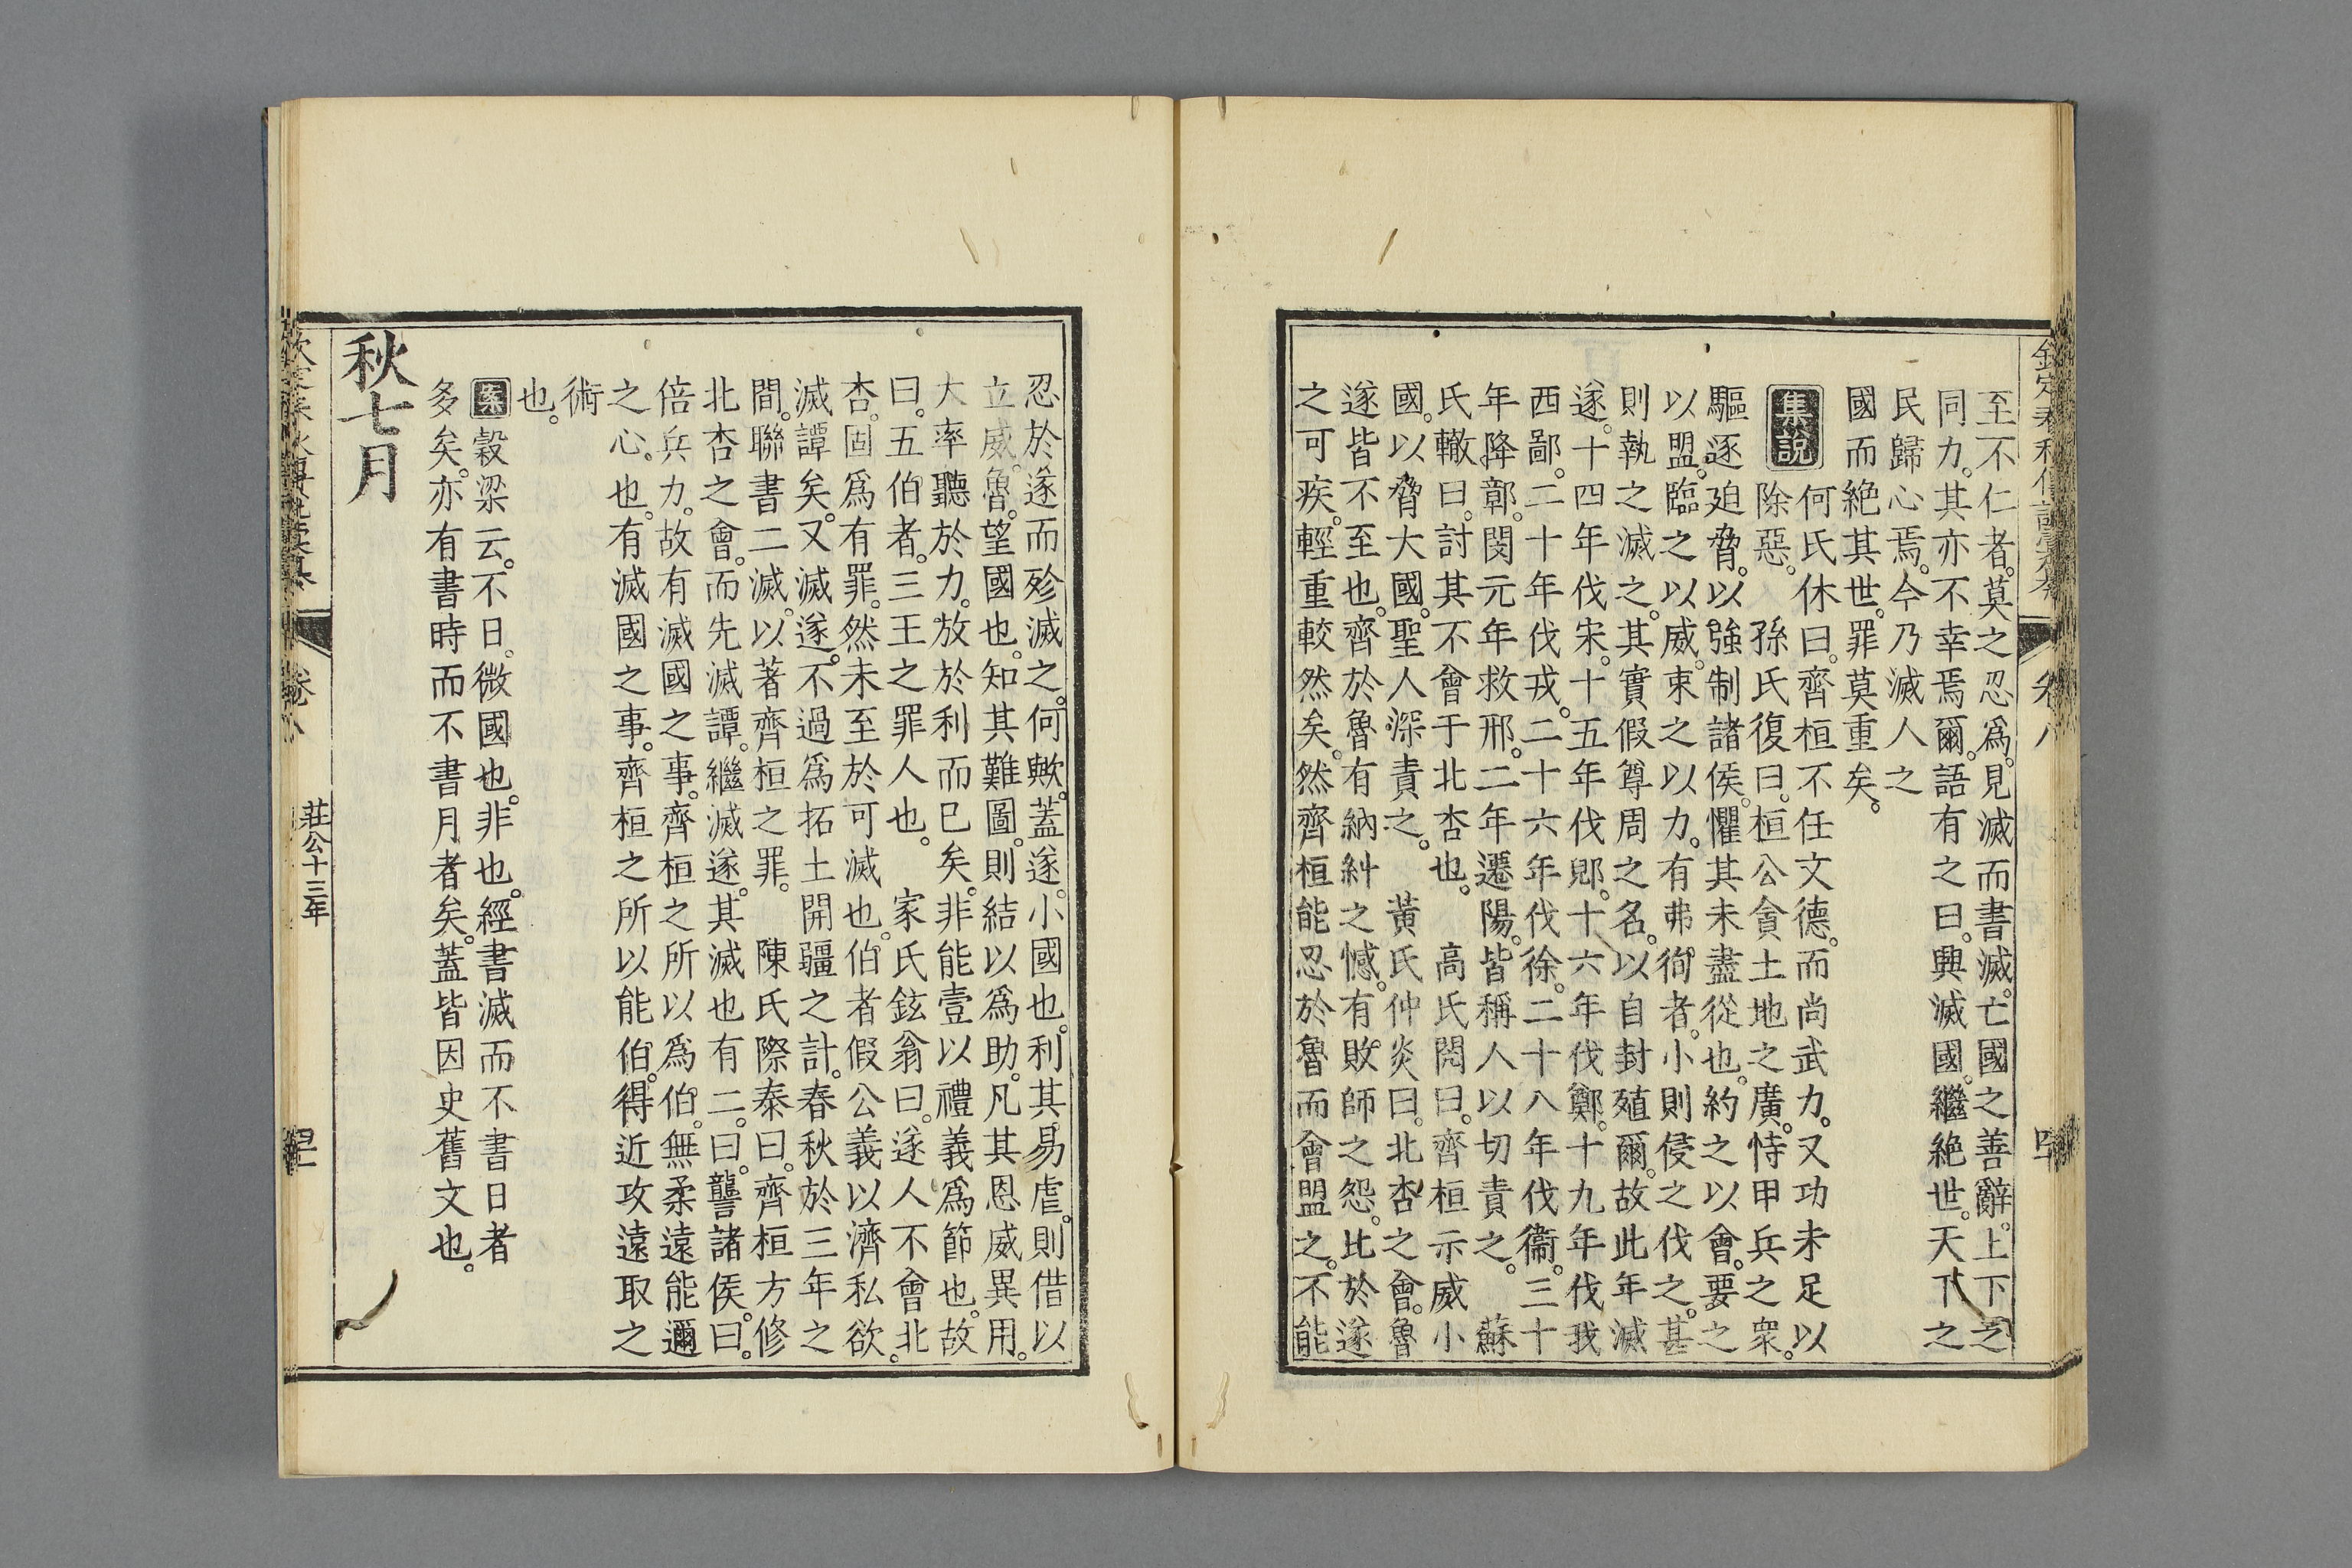 至不仁者。莫之忍爲。見滅而書滅。亡國之善辭。上下之
同力。其亦不幸焉爾。語有之曰。興滅國。繼絶世。天下之
民歸心焉。今乃滅人之
國而絶其世。罪莫重矣。
集說
何氏休曰。齊桓不任文德。而尚武力。又功未足以
除惡。　孫氏復曰。桓公貪土地之廣。恃甲兵之衆。
驅逐廹脅。以強制諸侯。懼其未盡從也。約之以會。要之
以盟。臨之以威。束之以力。有弗徇者。小則侵之伐之。甚
則執之滅之。其實假尊周之名。以自封殖爾。故此年滅
遂。十四年伐宋。十五年伐郳。十六年伐鄭。十九年伐我
西鄙。二十年伐戎。二十六年伐徐。二十八年伐衞。三十
年降鄣。閔元年救邢。二年遷陽。皆稱人以切責之。　蘇
氏轍曰。討其不會于北杏也。　高氏閌曰。齊桓示威小
國。以脅大國。聖人深責之。　黃氏仲炎曰。北杏之會。魯
遂皆不至也。齊於魯有納糾之憾。有敗師之怨。比於遂
之可疾。輕重較然矣。然齊桓能忍於魯而會盟之。不能
忍於遂而殄滅之。何歟。蓋遂。小國也。利其易虐。則借以
立威。魯。望國也。知其難圖。則結以爲助。凡其恩威異用。
大率聽於力。放於利而已矣。非能壹以禮義爲節也。故
曰。五伯者。三王之罪人也。　家氏鉉翁曰。遂人不會北
杏。固爲有罪。然未至於可滅也。伯者假公義以濟私欲。
滅譚矣。又滅遂。不過爲拓土開疆之計。春秋於三年之
間。聯書二滅。以著齊桓之罪。　陳氏際泰曰。齊桓方修
北杏之會。而先滅譚。繼滅遂。其滅也有二。曰。讋諸侯。曰。
倍兵力。故有滅國之事。齊桓之所以爲伯。無柔遠能邇
之心。也。有滅國之事。齊桓之所以能伯。得近攻遠取之
術
也。
案穀梁云。不日。微國也。非也。經書滅而不書日者
多矣。亦有書時而不書月者矣。蓋皆因史舊文也。
秋七月
卷八
莊公十三年